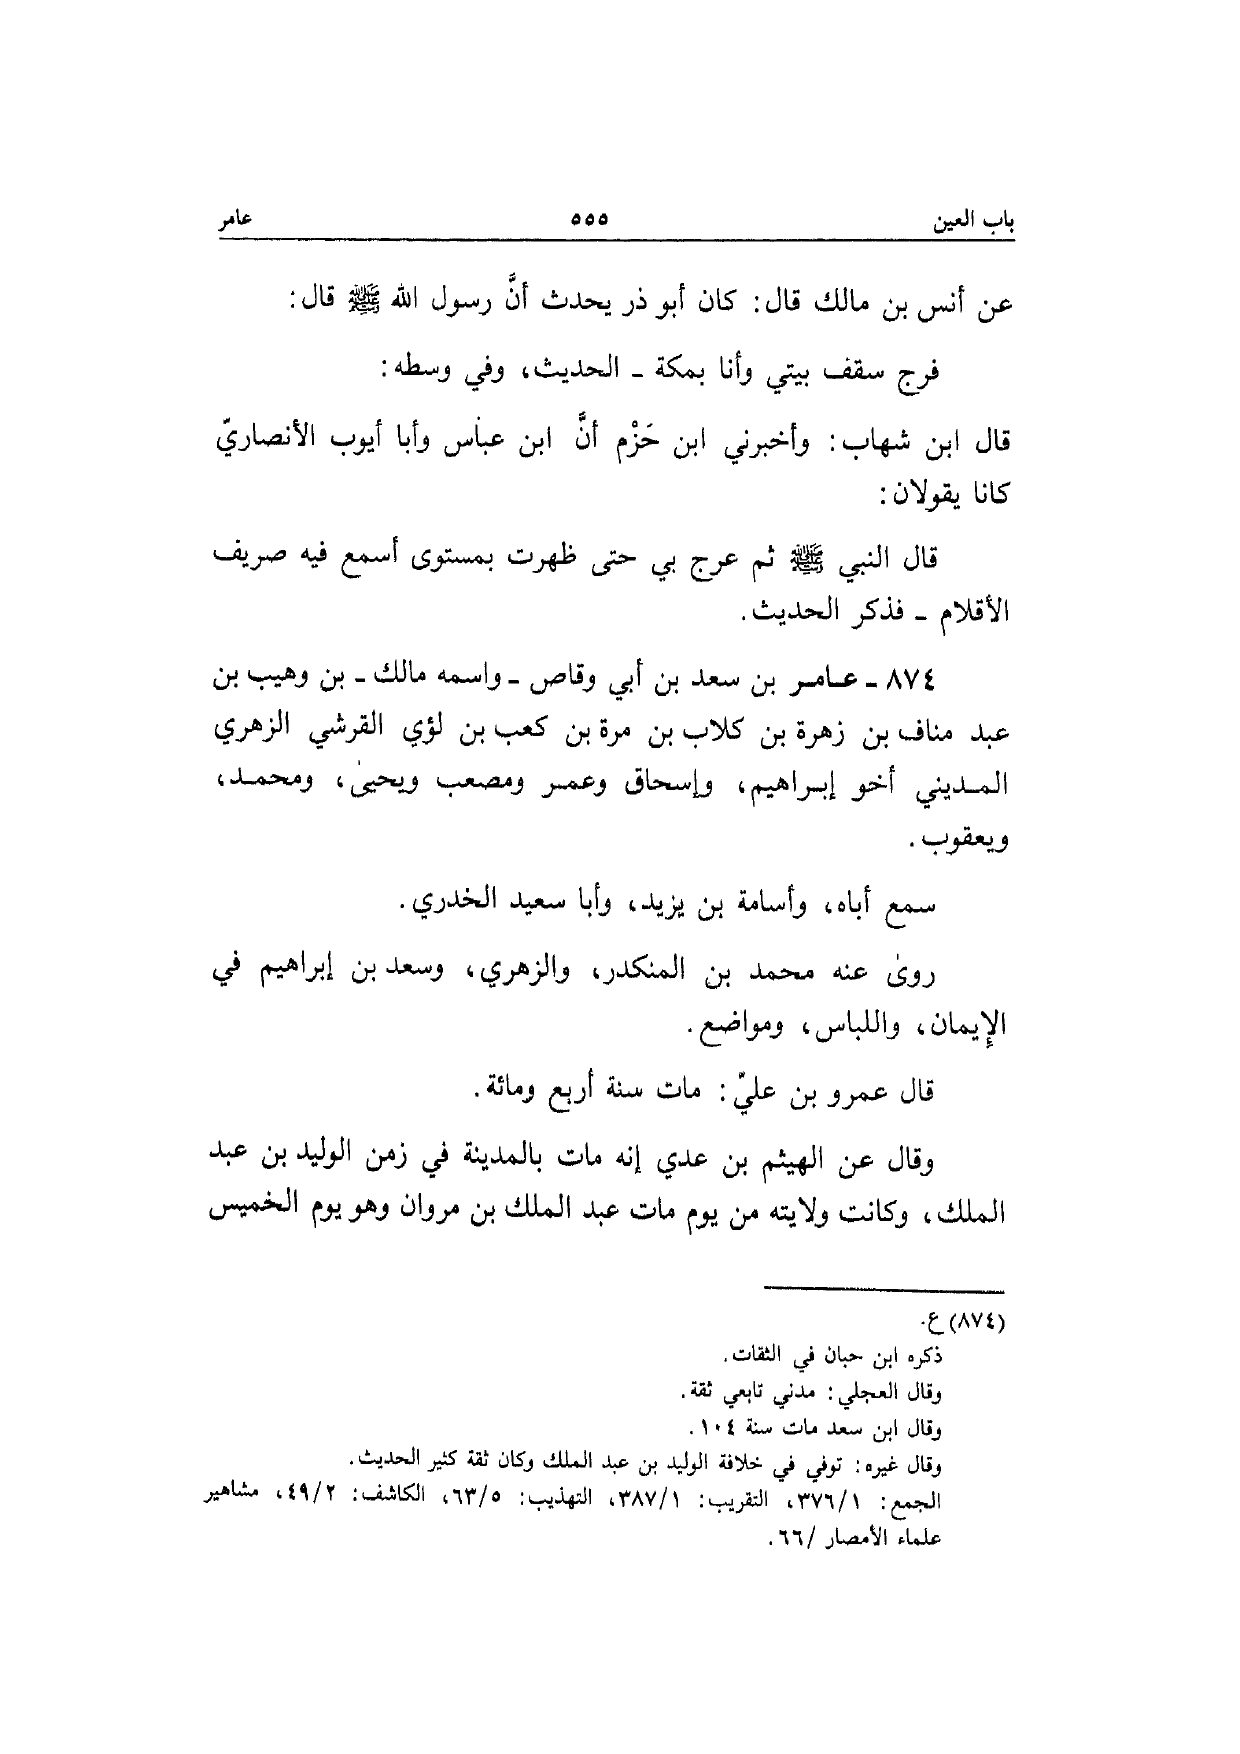 باب العين ٥٥٥ عامر
عن أنس بن مالك قال: كان أبو ذر يحدث أنَّ رسول الله ﷺ قال:
فرج سقف بيتي وأنا بمكة ـ الحديث، وفي وسطه:
قال ابن شهاب: وأخبرني ابن حَزْم أنَّ ابن عباس وأبا أيوب الأنصاريّ
كانا يقولان:
قال النبي ﷺ ثم عرج بي حتى ظهرت بمستوى أسمع فيه صريف
الأقلام ـ فذكر الحديث.
٨٧٤ ـ عامر بن سعد بن أبي وقاص ـ واسمه مالك ـ بن وهيب بن
عبد مناف بن زهرة بن كلاب بن مرة بن كعب بن لؤي القرشي الزهري
المديني أخو إبراهيم، وإسحاق وعمر ومصعب ويحيىٰ، ومحمد،
ويعقوب.
سمع أباه، وأسامة بن يزيد، وأبا سعيد الخدري.
روىٰ عنه محمد بن المنكدر، والزهري، وسعد بن إبراهيم في
الإيمان، واللباس، ومواضع.
قال عمرو بن عليّ: مات سنة أربع ومائة.
وقال عن الهيثم بن عدي إنه مات بالمدينة في زمن الوليد بن عبد
الملك، وكانت ولايته من يوم مات عبد الملك بن مروان وهو يوم الخميس
(٨٧٤) ع.
ذكره ابن حبان في الثقات.
وقال العجلي: مدني تابعي ثقة.
وقال ابن سعد مات سنة ١٠٤.
وقال غيره: توفي في خلافة الوليد بن عبد الملك وكان ثقة كثير الحديث.
الجمع: ٣٧٦/١، التقريب: ٣٨٧/١، التهذيب: ٦٣/٥، الكاشف: ٤٩/٢، مشاهير
علماء الأمصار /٦٦.